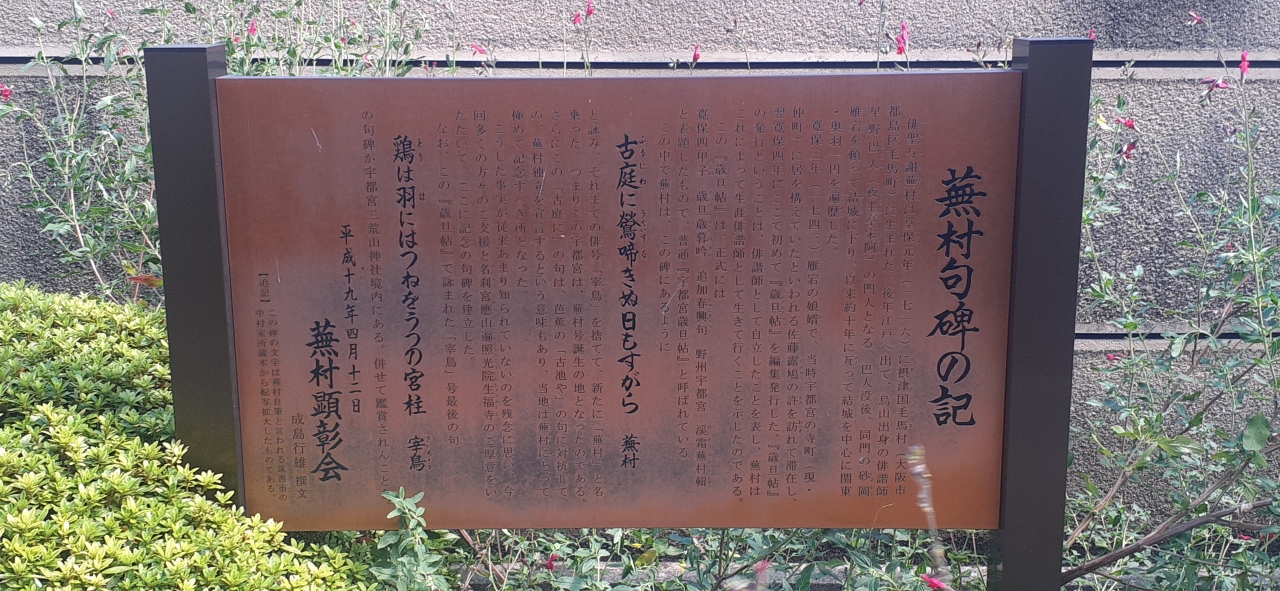 蕪村句碑の記
俳聖与謝蕪村は享保元年(一七一六)に摂津国毛馬村(大阪市
都島区毛馬町)に生まれた。後年江戸へ出て、烏山出身の俳諧師
早野巴人(夜半亭宋阿)の門人となる。巴人没後、同門の砂岡
雁宕を頼って結城に下り、以来約十年に亙って結城を中心に関東
・奥羽一円を遍歴した。
寛保三年(一七四三)、雁宕の娘婿で、当時宇都宮の寺町(現・
仲町)に居を構えていたといわれる佐藤露鳩の許を訪れて滞在し、
翌寛保四年にここで初めて『歳旦帖』を編集発行した。『歳旦帖』
の発行ということは、俳諧師として自立したことを表し、蕪村は
これによって生涯俳諧師として生きて行くことを示したのである。
この『歳旦帖』は、正式には
寛保四甲子 歳旦歳暮吟 追加春興句 野州宇都宮 渓霜蕪村輯
と表題したもので、普通『宇都宮歳旦帖』と呼ばれている。
この中で蕪村は、この碑にあるように
古庭に鶯啼きぬ日もすがら 蕪村
ふるにわ うぐいす な
と詠み、それまでの俳号「宰鳥」を捨てて、新たに「蕪村」と名
乗った。つまりこの宇都宮は、蕪村号誕生の地となったのである。
さらにこの「古庭に」の句は、芭蕉の「古池や」の句に対抗して
の、蕪村独立を宣言するという意味もあり、当地は蕪村にとって
極めて記念すべき所となった。
こうした事実が従来あまり知られていないのを残念に思い、今
回多くの方々のご支援と名刹宮應山遍照光院生福寺のご厚意をい
ただいて、ここに記念の句碑を建立した。
なお、この『歳旦帖』で詠まれた「宰鳥」号最後の句
鶏は羽にはつねをうつの宮柱 宰鳥
とり は さいちょう
の句碑が宇都宮二荒山神社境内にある。併せて鑑賞されんことを
平成十九年四月十二日
蕪村顕彰会
成島行雄 撰文
【追記】この碑の文字は蕪村自筆と言われる筑西市の
中村家所蔵本から転写拡大したものである。